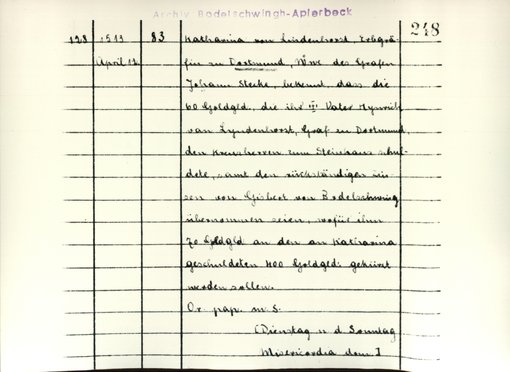 Archiv Bodelschwingh-Aplerbeck
248
128 1511 83 Katharina von Lindenhorst, Erbgrä-
April 12 fin zu Dortmund, Wwe des Grafen
Johann Stecke, bekennt, dass die
60 Goldgld, die ihr Vater Hynrich
van Lyndenhorst, Graf zu Dortmund,
den Kreuzherren zum Steinhaus schul-
dete, samt den rückständigen Zin-
sen von Gisbert von Bodelschwing
übernommen seien, wofür ihm
70 Goldgld an den an Katharina
geschuldeten 400 Goldgld. gekürzt
werden sollen.
Or. pap. m. S.
(Dienstag n d Sonntag
Misericordia dom.)